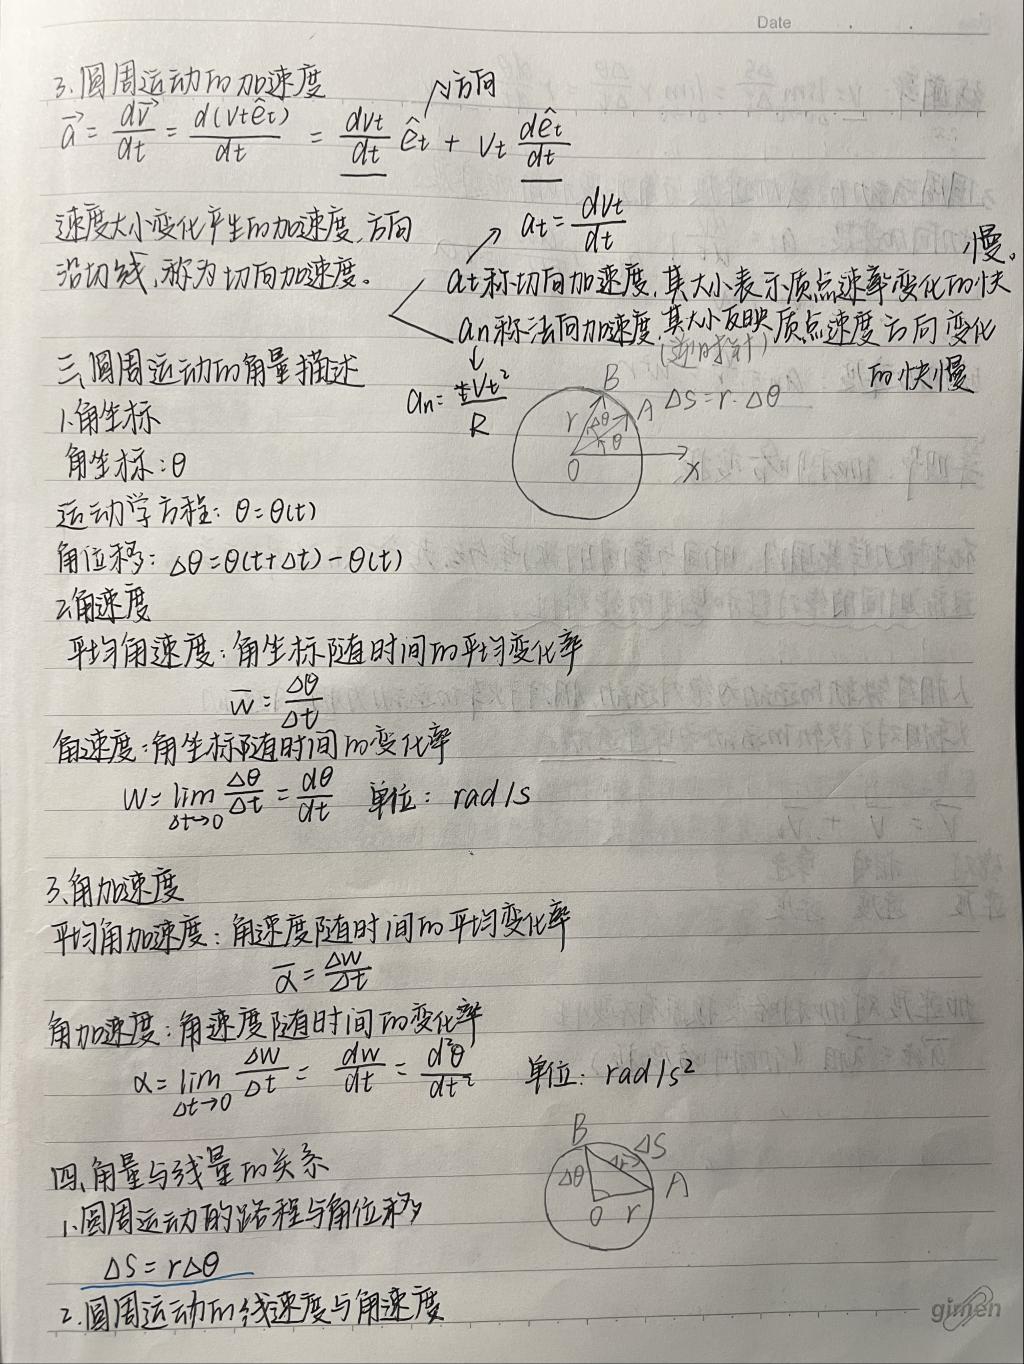 Date
3.圆周运动的加速度
方向
a⃗ = dv⃗/dt = d(vtêt)/dt = dvt/dt êt + vt dêt/dt
速度大小变化产生的加速度,方向
沿切线,称为切向加速度。
at = dvt/dt
at称切向加速度,其大小表示质点速率变化的快
慢。
an称法向加速度,其大小反映质点速度方向变化
的快慢
an = vt²/R
三、圆周运动的角量描述
(逆时针)
B
A ΔS=r·Δθ
r Δθ θ
O x
1.角坐标
角坐标:θ
运动学方程: θ=θ(t)
角位移: Δθ=θ(t+Δt)-θ(t)
2.角速度
平均角速度:角坐标随时间的平均变化率
w̅ = Δθ/Δt
角速度:角坐标随时间的变化率
w = lim Δt→0 Δθ/Δt = dθ/dt 单位: rad/s
3.角加速度
平均角加速度:角速度随时间的平均变化率
α̅ = Δw/Δt
角加速度:角速度随时间的变化率
α = lim Δt→0 Δw/Δt = dw/dt = d²θ/dt² 单位: rad/s²
四、角量与线量的关系
B ΔS
Δθ Δr A
O r
1.圆周运动的路程与角位移
ΔS=rΔθ
2.圆周运动的线速度与角速度
gimen